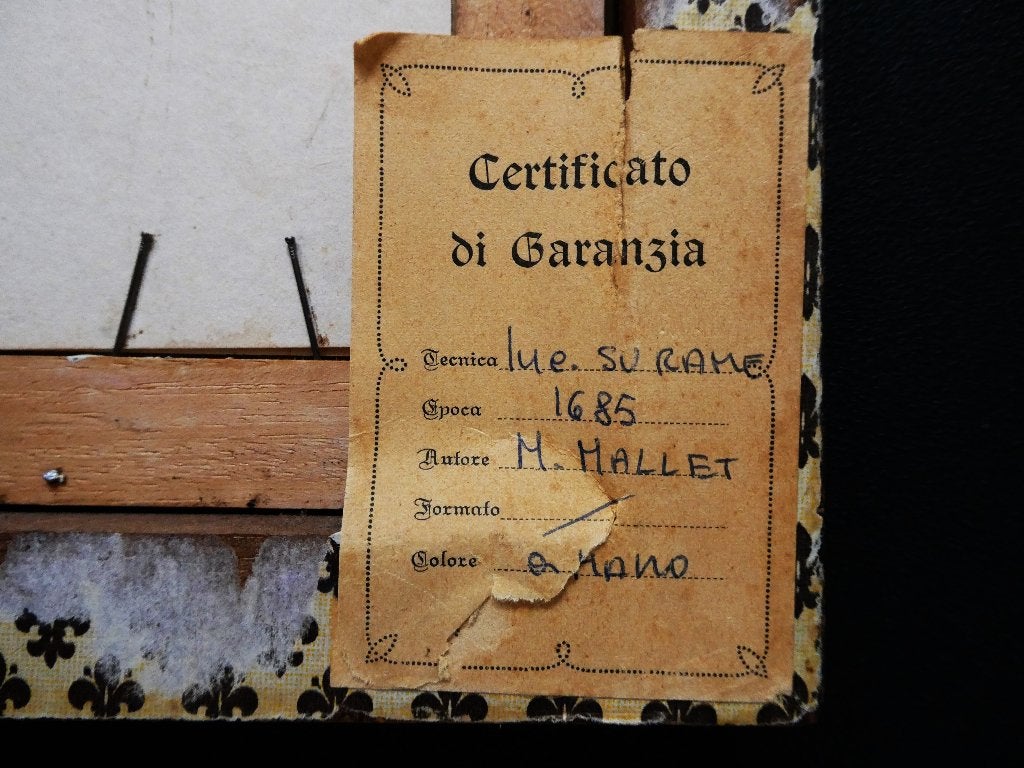 Certificato
di Garanzia
Tecnica Inc. SU RAME
Epoca 1685
Autore M. MALLET
Formato /
Colore a MANO